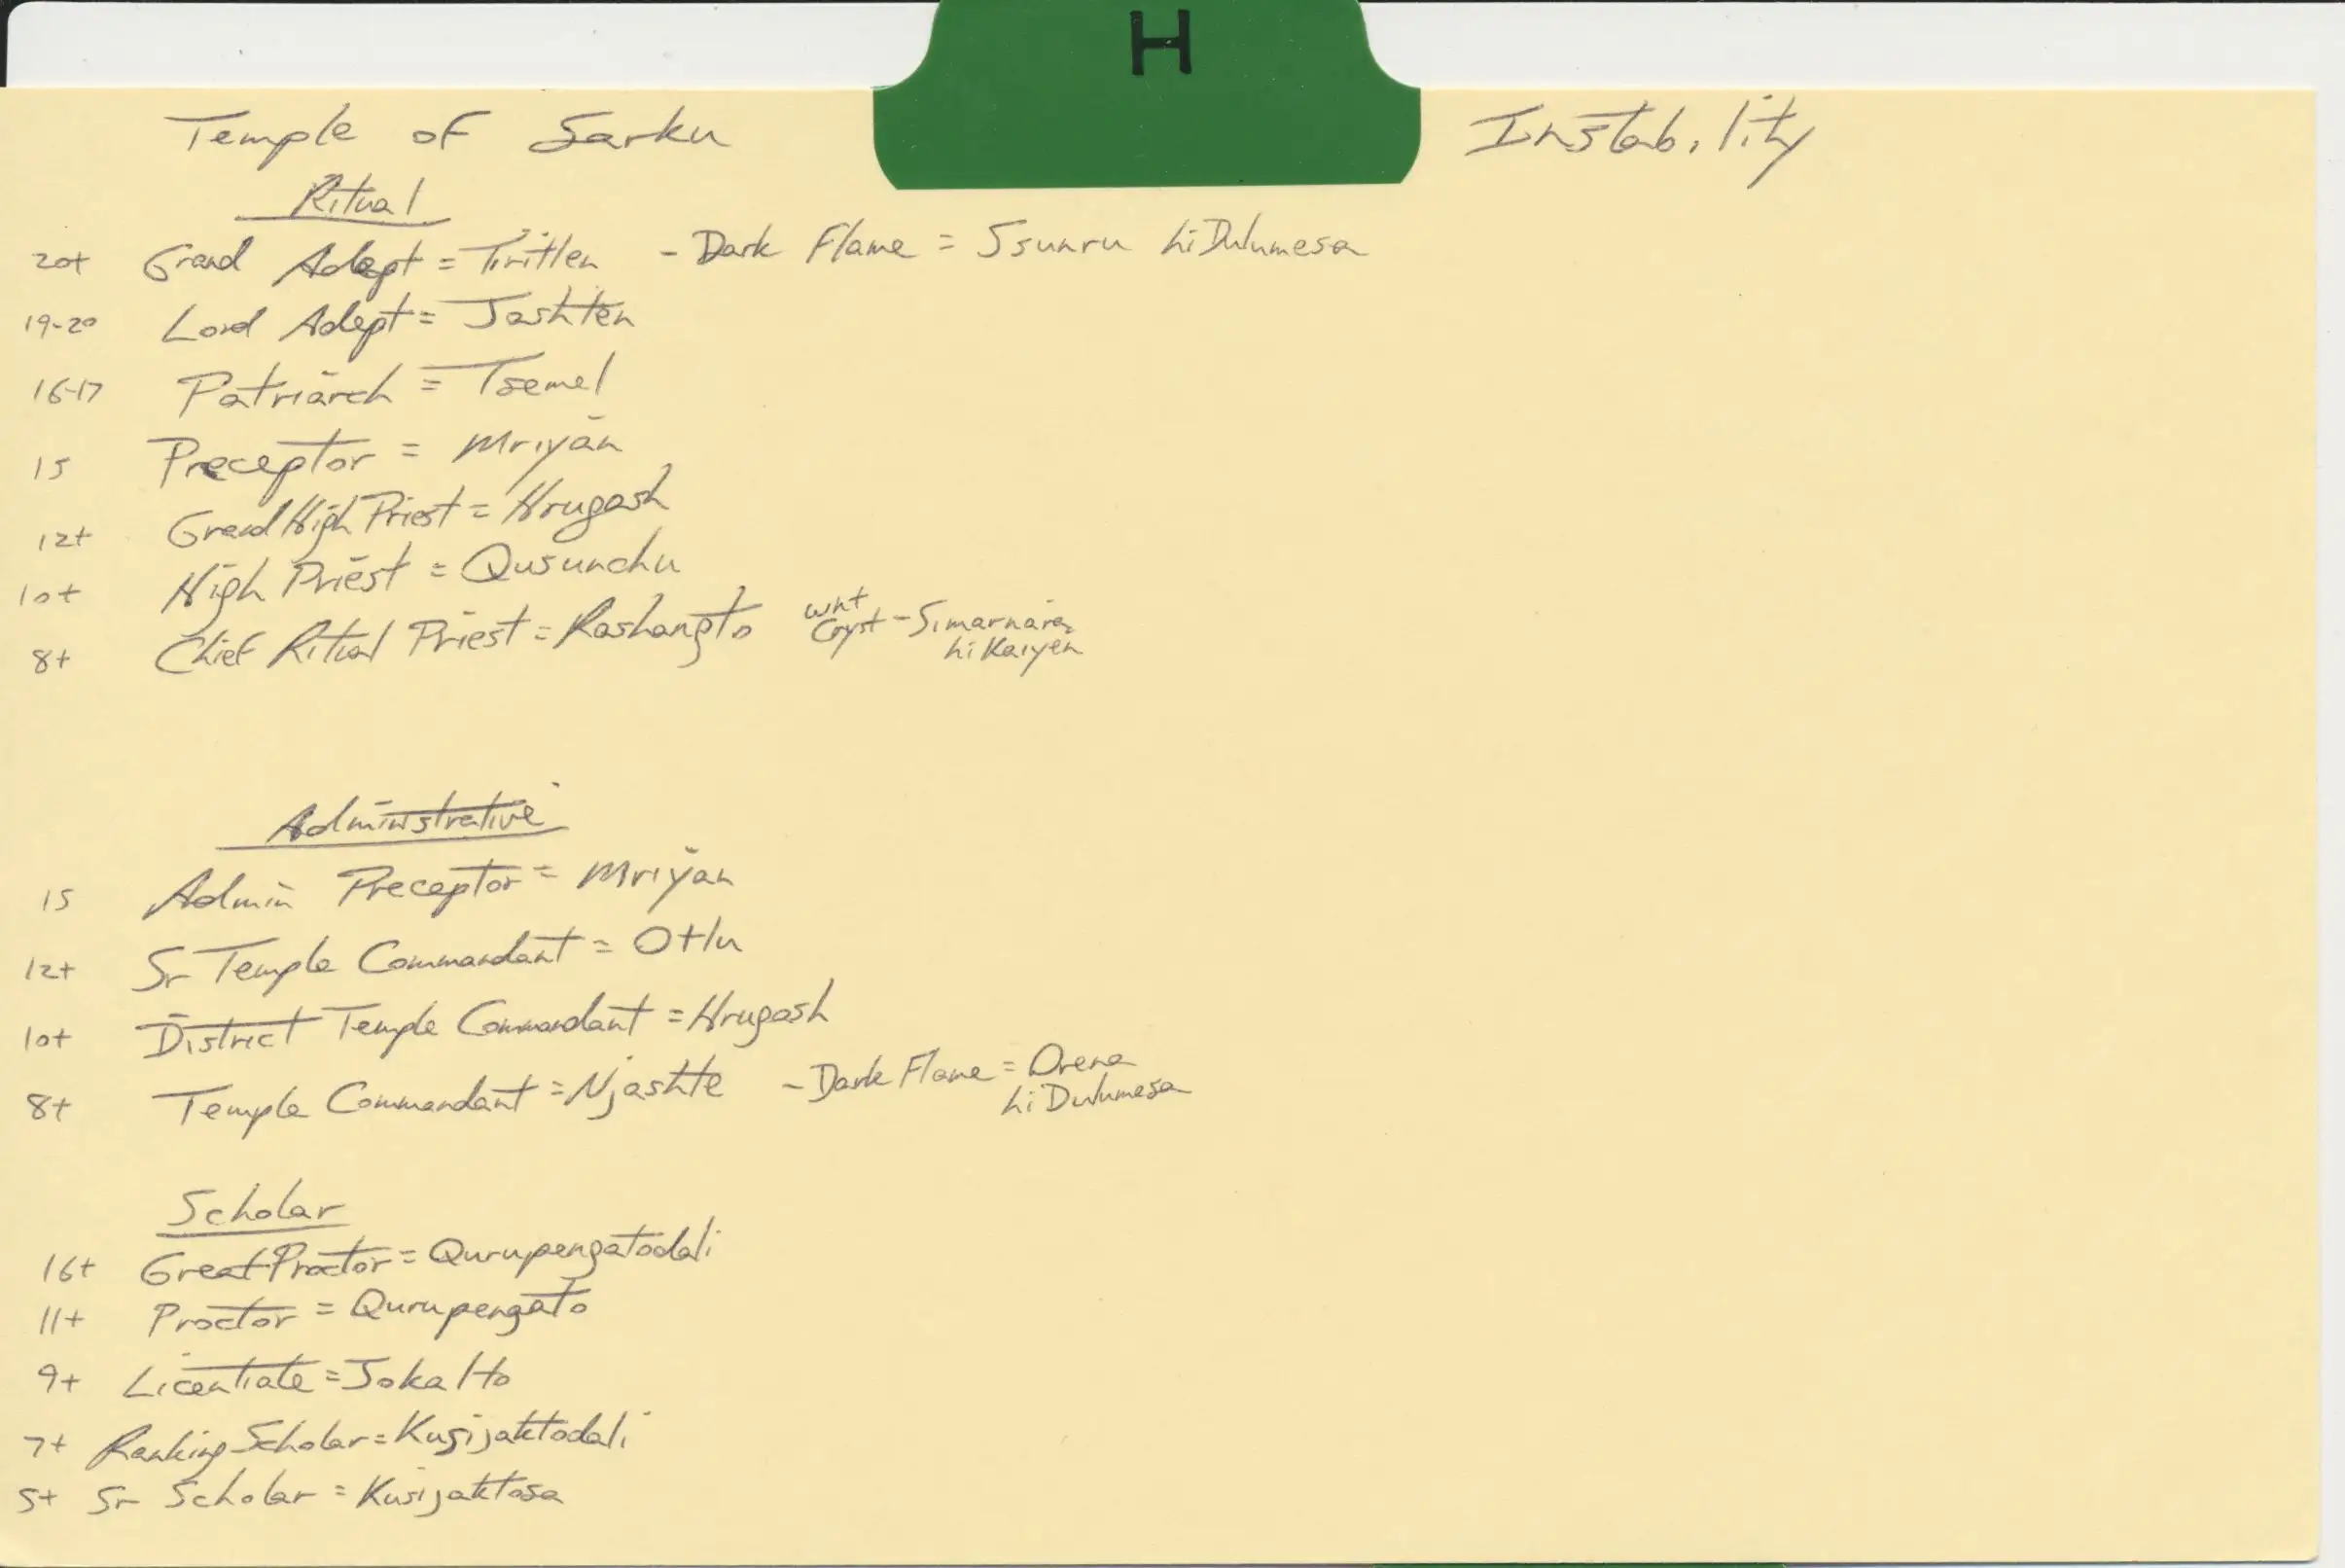 H
Temple of Sarku
Instability
Ritual
20+ Grand Adept = Tiritlen - Dark Flame = Ssunru hiDulumesa
19-20 Lord Adept = Jashten
16-17 Patriarch = Tsemel
15 Preceptor = Mriyan
12+ Grand High Priest = Hrugash
10+ High Priest = Qusunchu
8+ Chief Ritual Priest = Rashangto wht Cryst - Simarnaira
hiKaiyen
Administrative
15 Admin Preceptor = Mriyan
12+ Sr Temple Commandant = Otlu
10+ District Temple Commandant = Hrugash
8+ Temple Commandant = Njashte - Dark Flame = Orena
hiDulumesa
Scholar
16+ Great Proctor = Qurupengatodali
11+ Proctor = Qurupengato
9+ Licentiate = Jokalto
7+ Ranking Scholar = Kusijaktodali
5+ Sr Scholar = Kusijaktosa